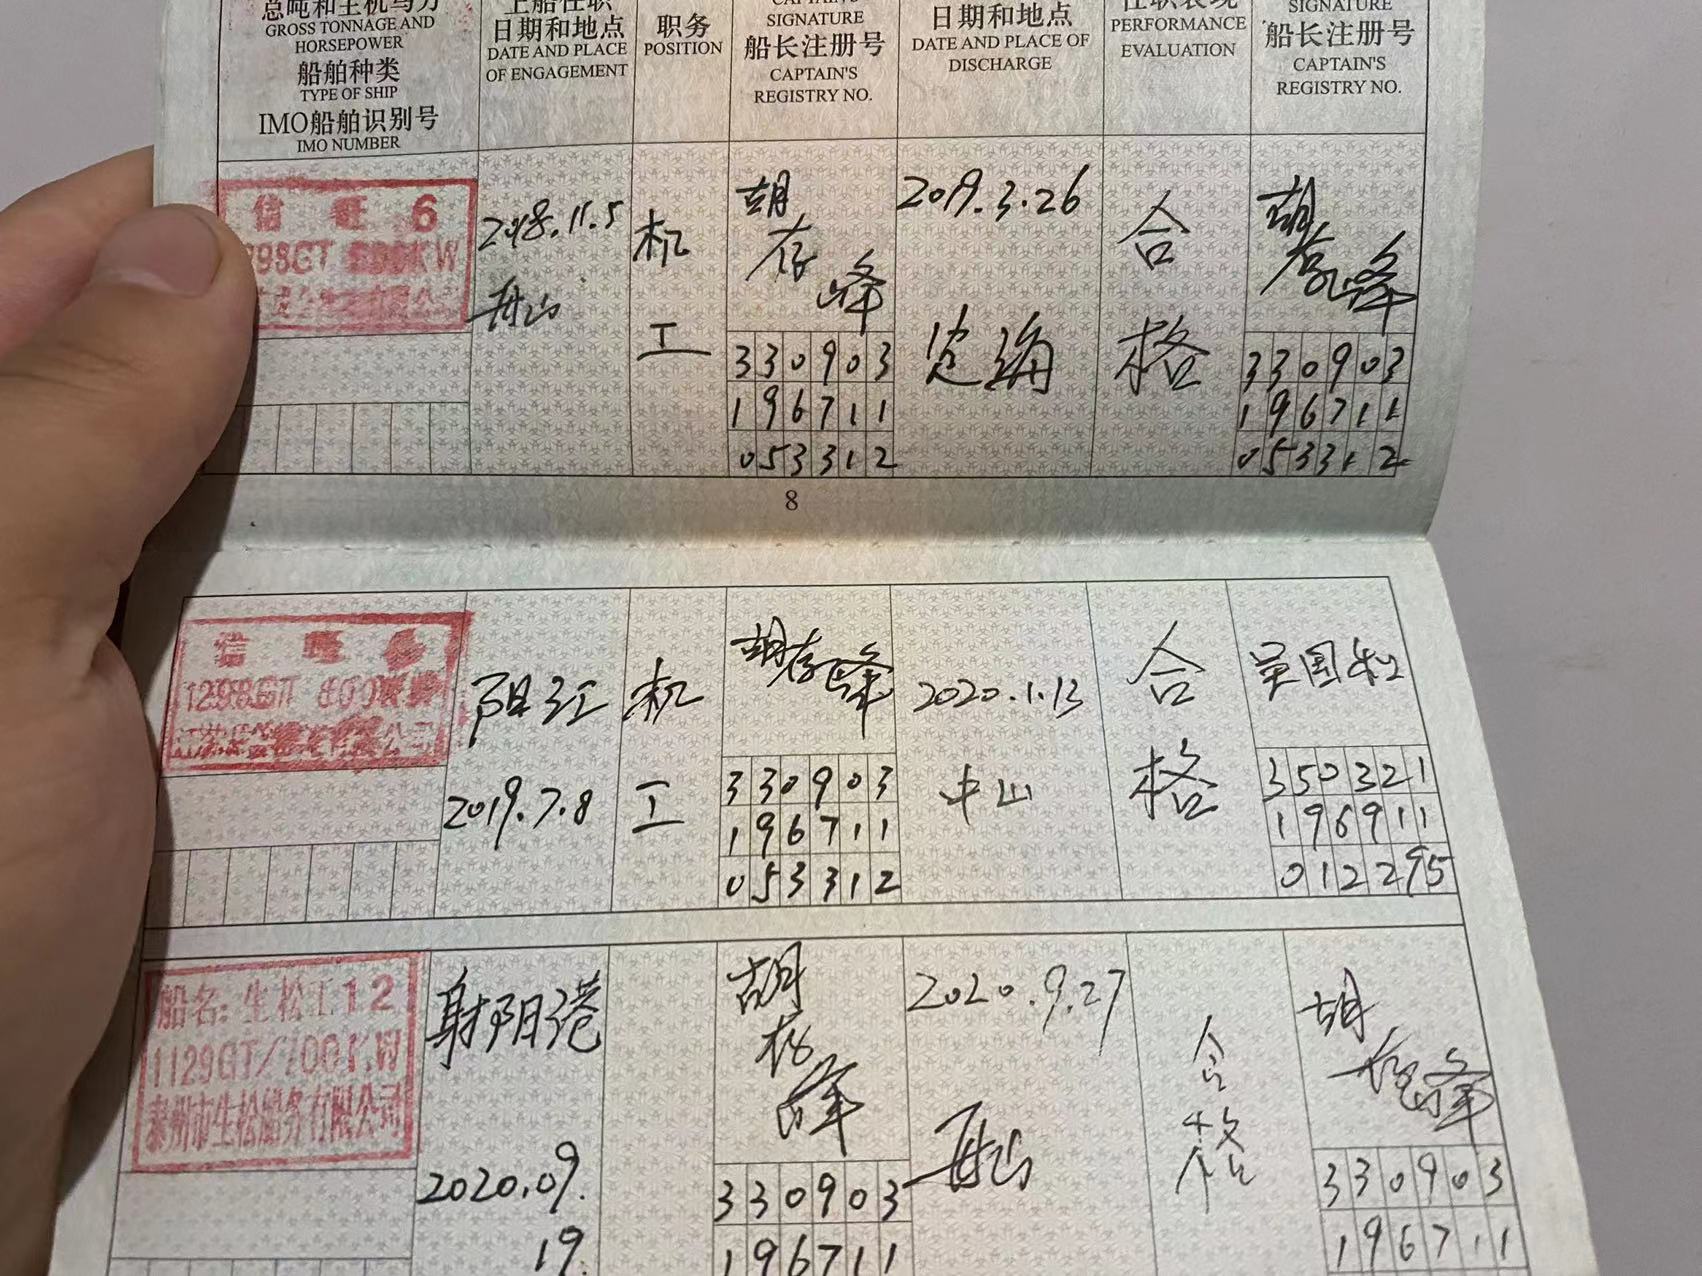 总吨和主机马力
GROSS TONNAGE AND
HORSEPOWER
船舶种类
TYPE OF SHIP
IMO船舶识别号
IMO NUMBER
上船任职
日期和地点
DATE AND PLACE
OF ENGAGEMENT
职务
POSITION
CAPTAIN'S
SIGNATURE
船长注册号
CAPTAIN'S
REGISTRY NO.
日期和地点
DATE AND PLACE OF
DISCHARGE
任职表现
PERFORMANCE
EVALUATION
SIGNATURE
船长注册号
CAPTAIN'S
REGISTRY NO.
信 旺 6
98GT KW
2018.11.5
舟山
机
工
胡
存
峰
330903
196711
053312
2019.3.26
定海
合
格
胡
存峰
330903
196711
053312
8
信
1298GT 800
公司
阳江
2019.7.8
机
工
胡存峰
330903
196711
053312
2020.1.13
中山
合
格
350321
196911
012295
船名:生松工12
1129GT/700KW
泰州市生松船务有限公司
射阳港
2020.09.
19.
胡
存
峰
330903
196711
2020.9.27
舟山
合
格
胡
存峰
330903
196711